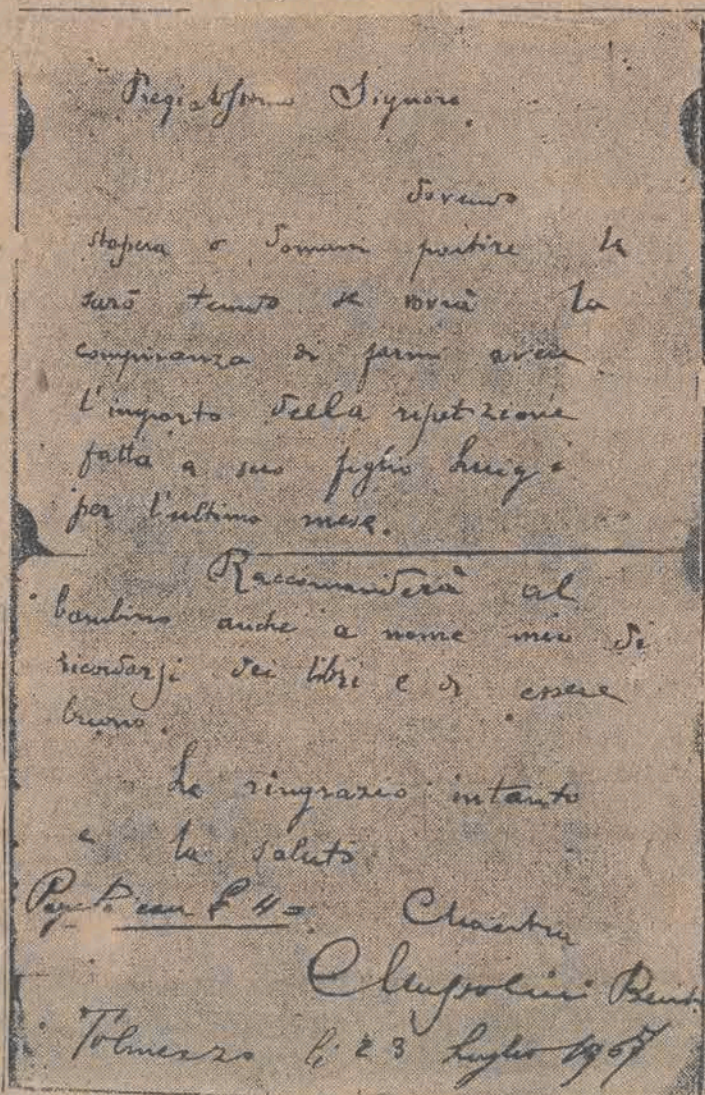 Pregiatissimo Signore
Dovendo
stasera o domani partire le
sarò tenuto se vorrà la
compiacenza di farmi avere
l'importo della ripetizione
fatta a suo figlio Luigi
per l'ultimo mese.
Raccomanderà al
bambino anche a nome mio di
ricordarsi dei libri e di essere
buono.
La ringrazio intanto
e la saluto
Pagato con £ 4=
Maestro
Mussolini Benito
Tolmezzo li 23 luglio 1907